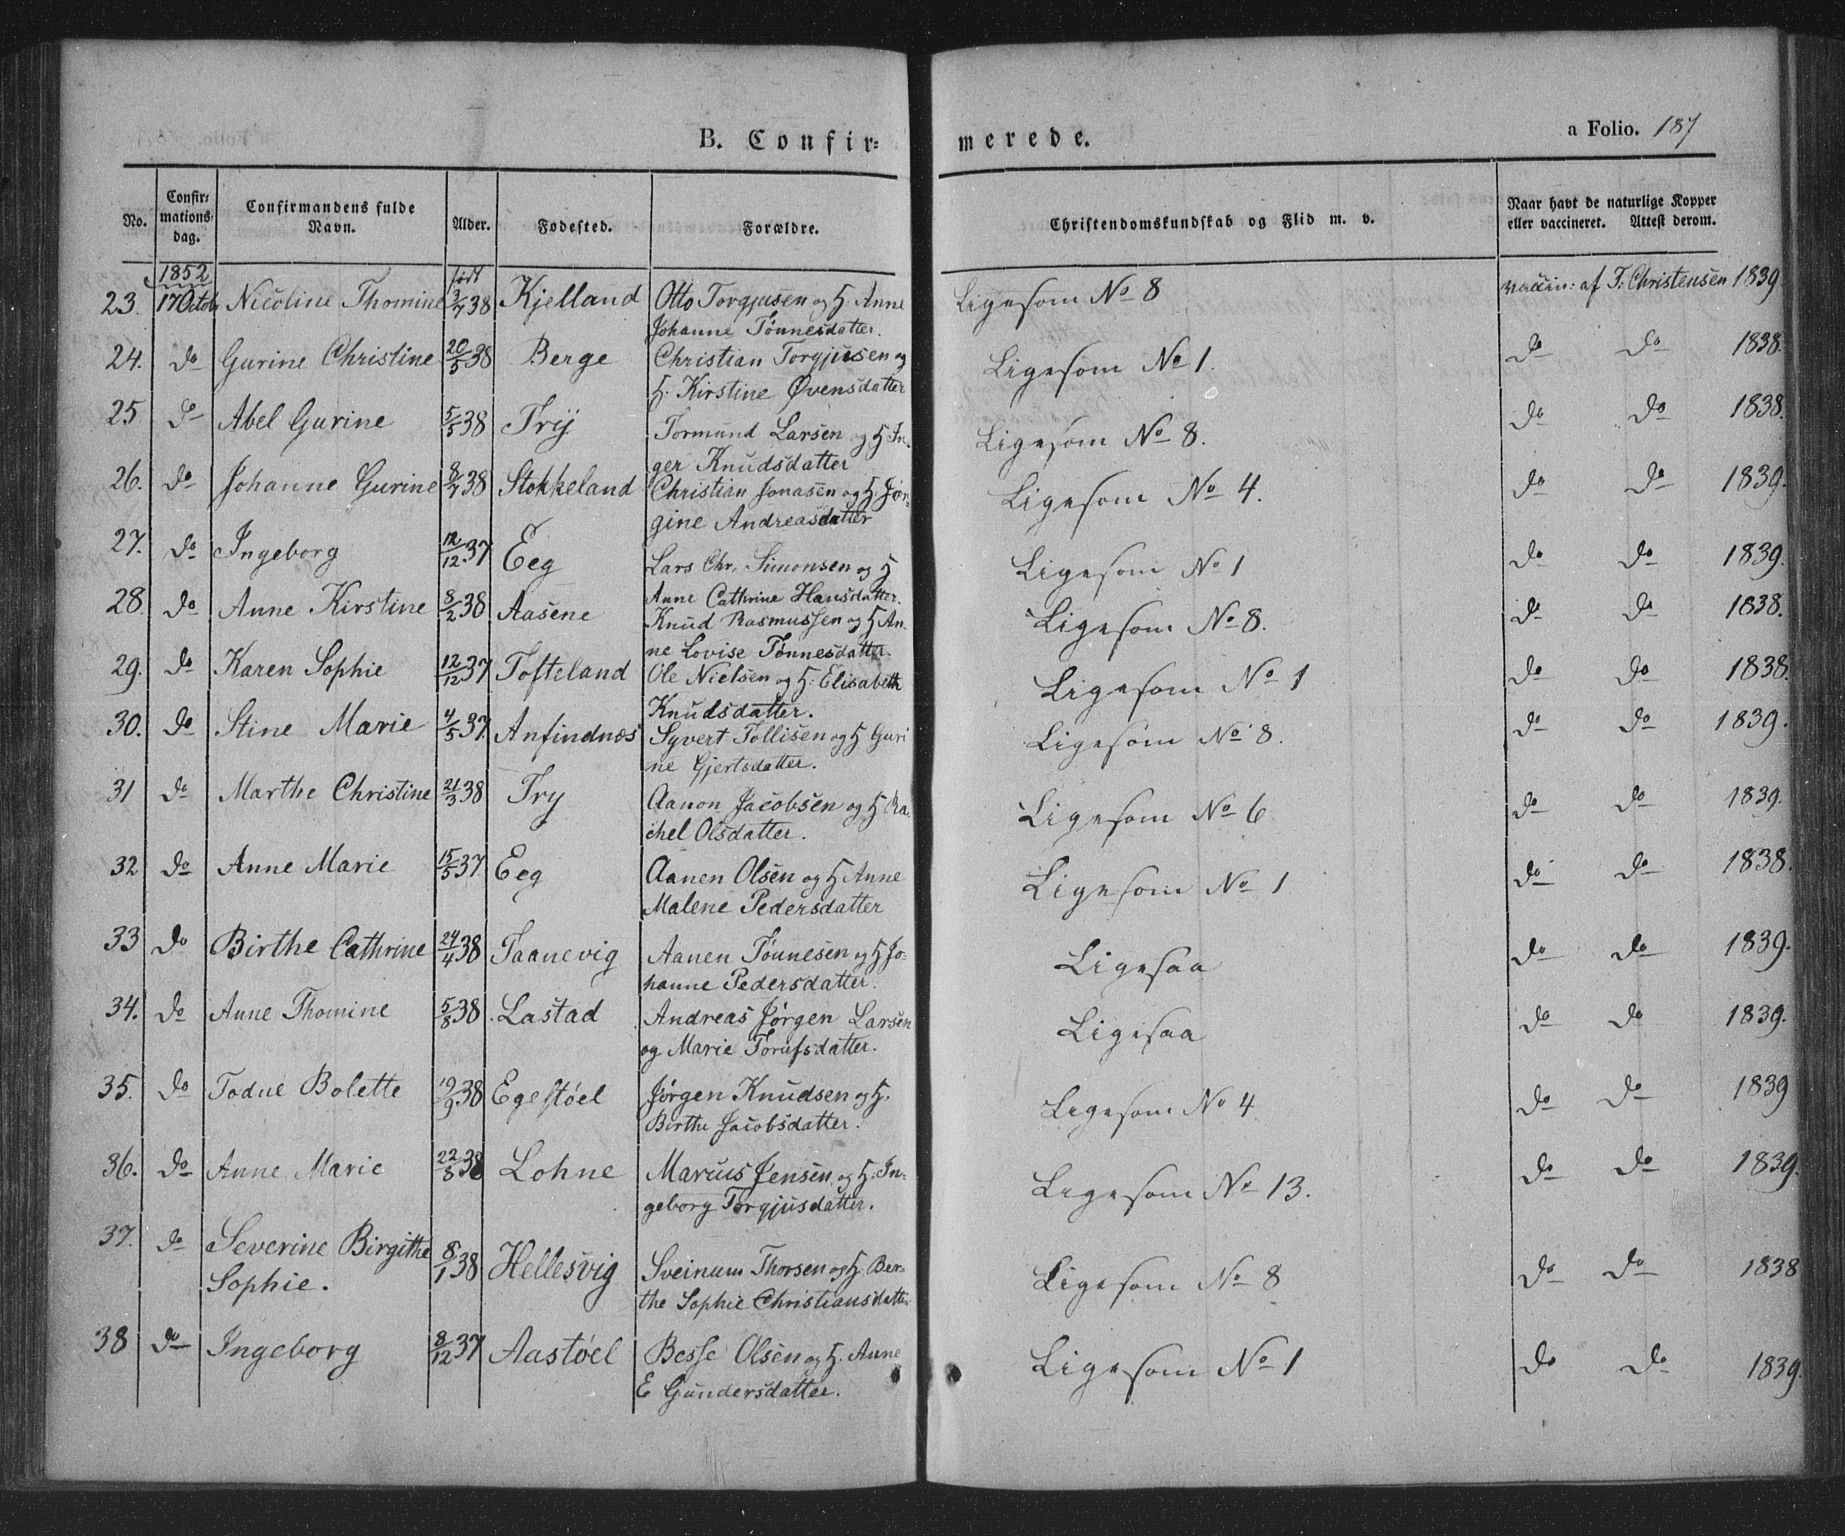 B. Confir=
merede.
a Folio. 187
No.
Confir=
mations=
dag.
Confirmandens fulde
Navn.
Alder.
Fødested.
Forældre.
Christendomskundskab og Flid m. v.
Naar havt de naturlige Kopper
eller vaccineret. Attest derom.
1852 født
23. 17 Octob Nicoline Thomine 3/7 38 Kjelland Otto Torgjusen og H. Anne Ligesom No 8 vaccin: af T. Christensen 1839.
Johanne Tønnesdatter.
24. do Gurine Christine 20/5 38 Berge Christian Torgjusen og Ligesom No 1. do do 1838.
H. Kirstine Øvensdatter
25 do Abel Gurine 5/5 38 Try Tormund Larsen og H In- Ligesom No 8. do do 1838.
ger Knudsdatter
26. do Johanne Gurine 8/7 38 Stokkeland Christian Jonasen og H. Jør- Ligesom No 4. do do 1839.
gine Andreasdatter
27. do Ingeborg 12/12 37 Eeg Lars Chr. Simonsen og H Ligesom No 1 do do 1839.
Anne Cathrine Hansdatter.
28. do Anne Kirstine 8/2 38 Aasene Knud Rasmussen og H An- Ligesom No 8. do do 1838.
ne Lovise Tønnesdatter
29. do Karen Sophie 12/12 37 Tofteland Ole Nielsen og H. Elisabeth Ligesom No 1 do do 1838.
Knudsdatter.
30. do Stine Marie 4/5 37 Anfindnæs Syvert Tollisen og H Guri Ligesom No 8. do do 1839.
ne Gjertsdatter.
31 do Marthe Christine 21/3 38 Try Aanon Jacobsen og H Ra- Ligesom No 6 do do 1839.
chel Olsdatter.
32 do Anne Marie 15/5 37. Eeg Aanen Olsen og H Anne Ligesom No 1. do do 1838.
Malene Pedersdatter
33 do Birthe Cathrine 24/4 38 Taanevig Aanen Tønnesen og H Jo- Ligesaa do do 1839.
hanne Pedersdatter.
34. do Anne Thomine 5/8 38. Lastad Andreas Jørgen Larsen Ligesaa do do 1839.
og Marie Torufsdatter.
35. do Todne Bolette 19/9 38 Egestøel Jørgen Knudsen og H. Ligesom No 4 do do 1839
Birthe Jacobsdatter.
36. do Anne Marie 22/8 38 Lohne Marcus Jensen og H. In- Ligesom No 13. do do 1839.
geborg Torgjusdatter.
37. do Severine Birgithe 8/1 38 Hellesvig Sveinum Thorsen og H. Ber- Ligesom No 8 do do 1838
Sophie. the Sophie Christiansdatter
38 do Ingeborg 8/12 37 Aastøel Besse Olsen og H. Anne Ligesom No 1 do do 1839.
E Gundersdatter.